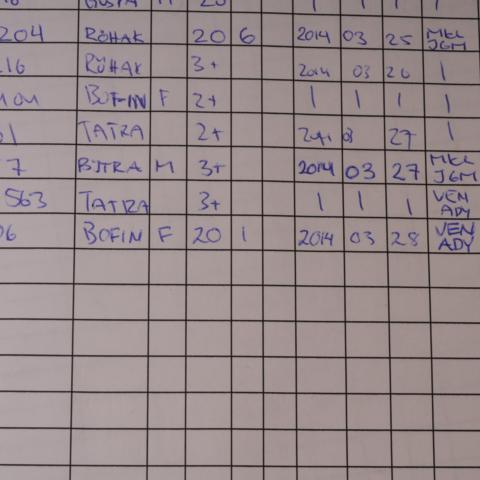 204 RÖHAK 20 6 2014 03 25 MKL JGM
216 RÖHAK 3+ 2014 03 26 |
BOFIN F 2+ | | | |
TATRA 2+ 27 |
7 BJTRA M 3+ 2014 03 27 MKL JGM
563 TATRA 3+ | | | VEN ADY
06 BOFIN F 20 1 2014 03 28 VEN ADY